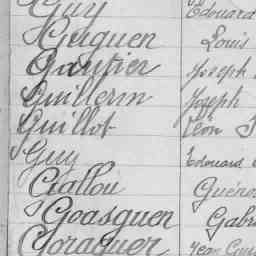 Guy Edouard
Guiguen Louis
Gautier Joseph
Guillerm Joseph
Guillot Léon
Guy Edouard
Gallou
Goasguen
Goraguer Jean